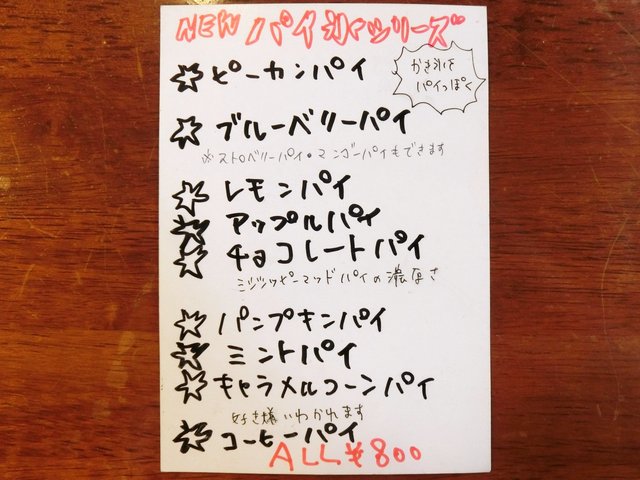 NEW パイ氷シリーズ
かき氷を
パイっぽく
☆ ピーカンパイ
☆ ブルーベリーパイ
※ストロベリーパイ・マンゴーパイもできます
☆ レモンパイ
☆ アップルパイ
☆ チョコレートパイ
ミシシッピーマッドパイの濃厚さ
☆ パンプキンパイ
☆ ミントパイ
☆ キャラメルコーンパイ
好き嫌いわかれます
☆ コーヒーパイ
ALL ¥800